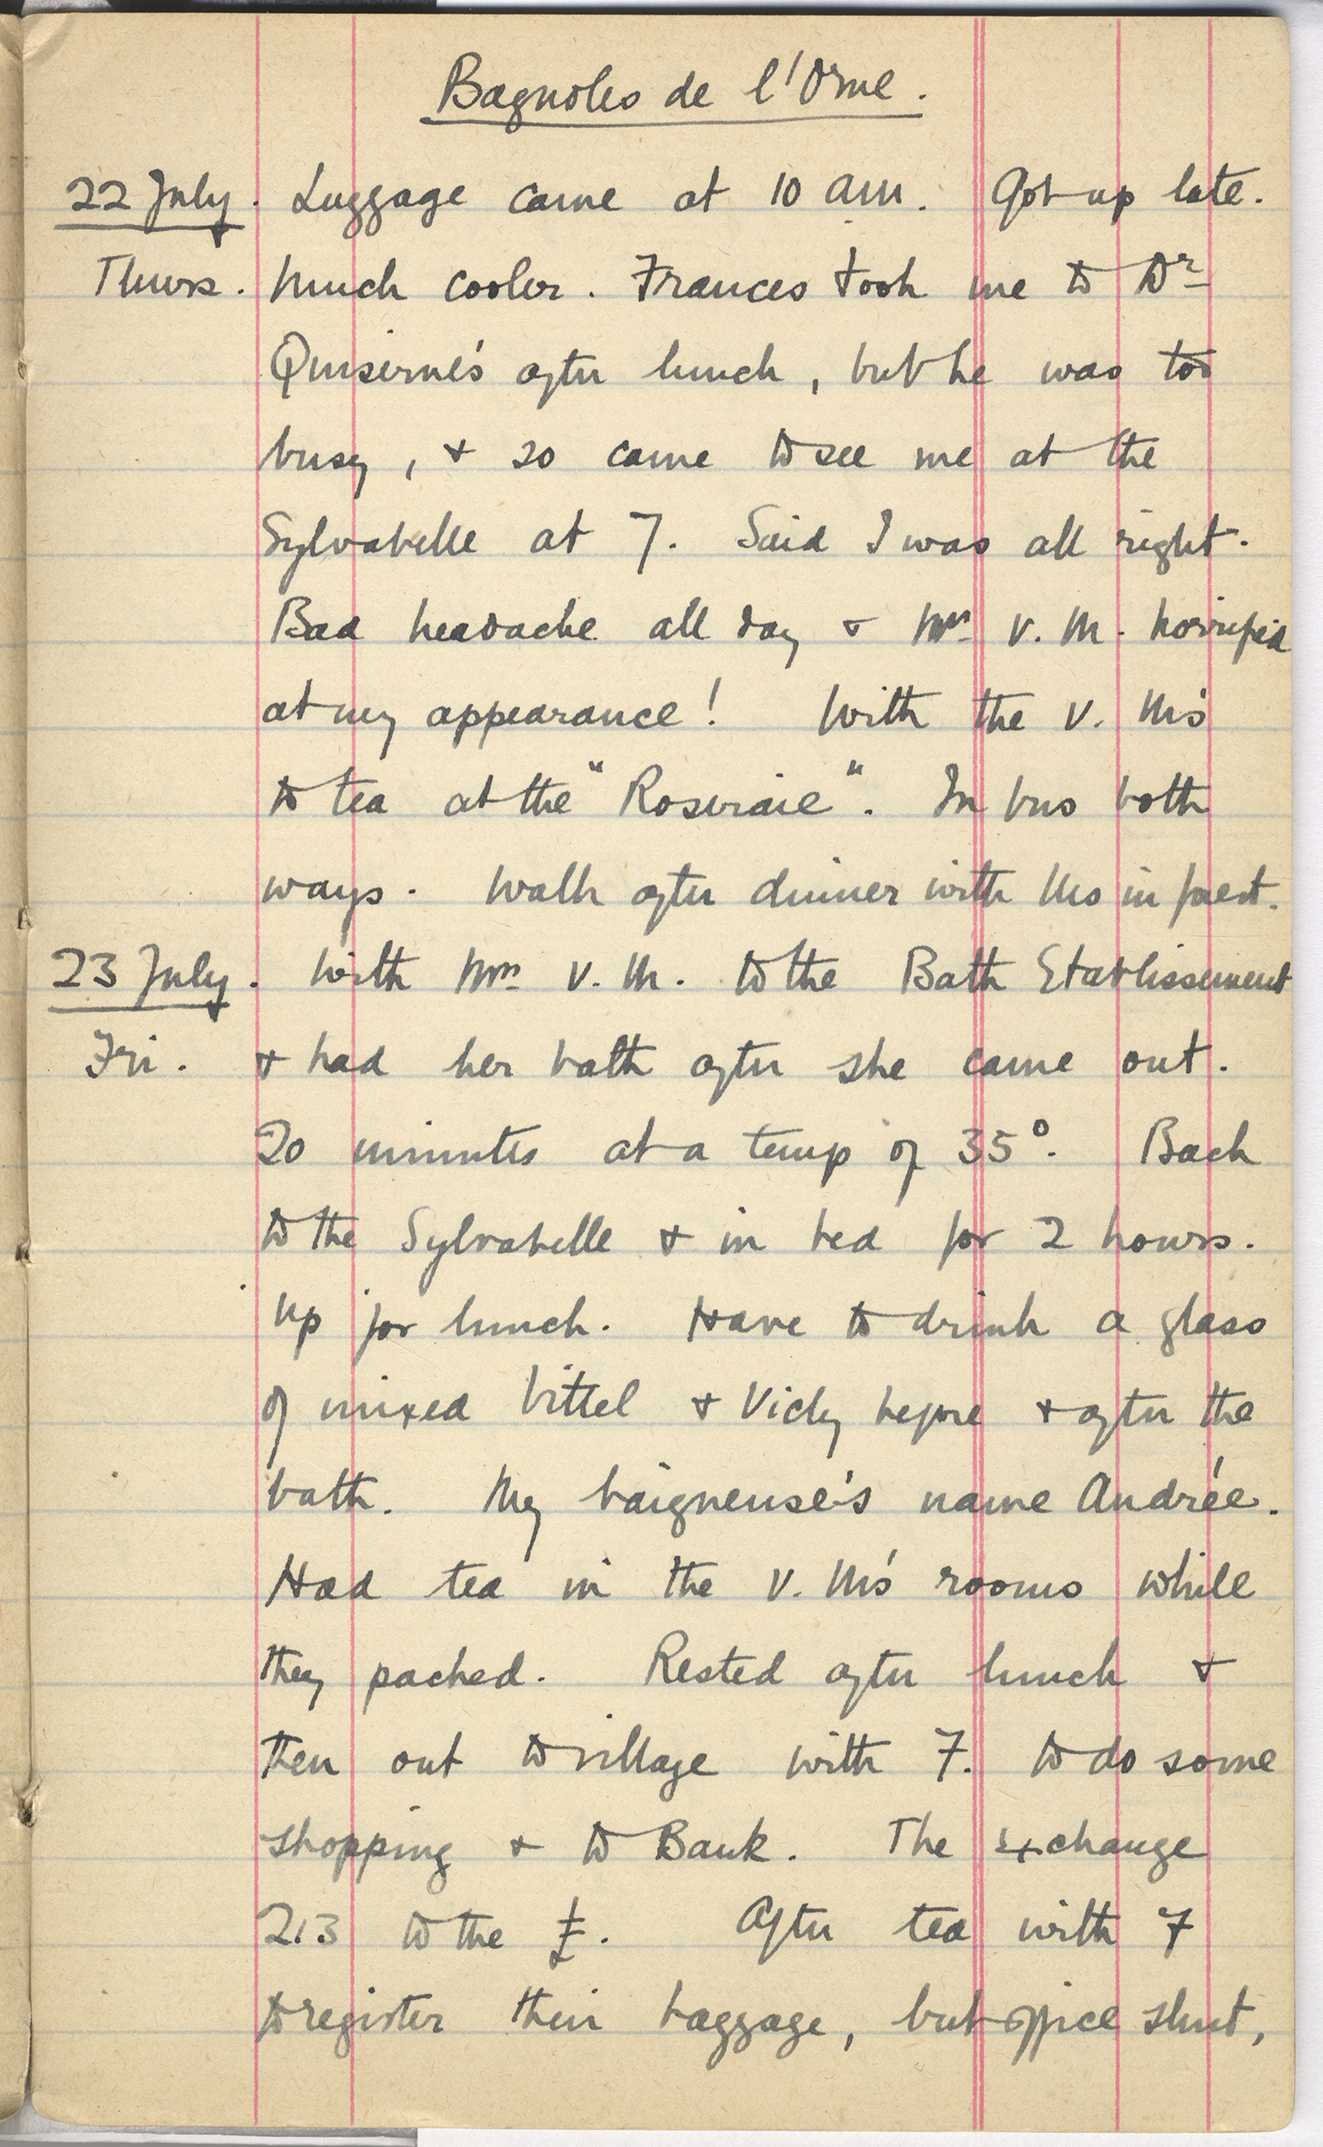 Bagnoles de l'Orne.
22 July. Luggage came at 10 am. Got up late.
Thurs. Much cooler. Frances took me to Dr
Quiserne's after lunch, but he was too
busy, & so came to see me at the
Sylvabelle at 7. Said I was all right.
Bad headache all day & Mrs V. M. horrified
at my appearance! With the V. Ms
to tea at the "Roseraie". In bus both
ways. Walk after dinner with Ms in forest.
23 July. With Mrs V. M. to the Bath Etablissement
Fri. & had her bath after she came out.
20 minutes at a temp of 35°. Back
to the Sylvabelle & in bed for 2 hours.
Up for lunch. Have to drink a glass
of mixed Vittel & Vichy before & after the
bath. My baigneuse's name Andrée.
Had tea in the V. Ms' rooms while
they packed. Rested after lunch &
then out to village with F. to do some
shopping & to Bank. The exchange
213 to the £. After tea with F
to register their baggage, but office shut,